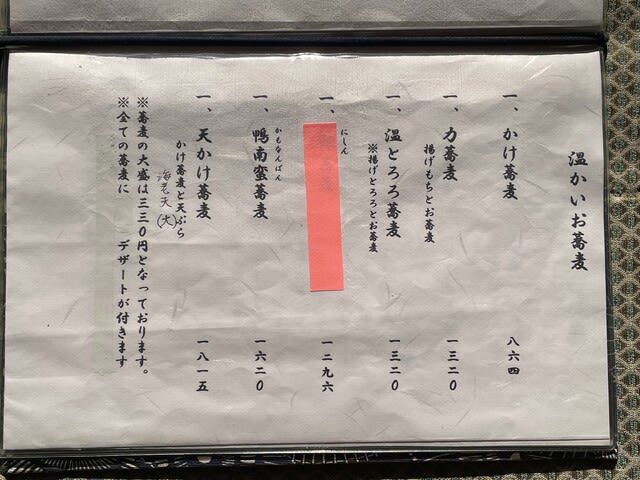 温かいお蕎麦
一、かけ蕎麦 八六四
一、力蕎麦 一三二〇
揚げもちとお蕎麦
一、温とろろ蕎麦 一三二〇
※揚げとろろとお蕎麦
一、 一二九六
にしん
一、鴨南蛮蕎麦 一六二〇
かもなんばん
一、天かけ蕎麦 一八一五
かけ蕎麦と天ぷら
海老天(大)
※蕎麦の大盛は三三０円となっております。
※全ての蕎麦に デザートが付きます